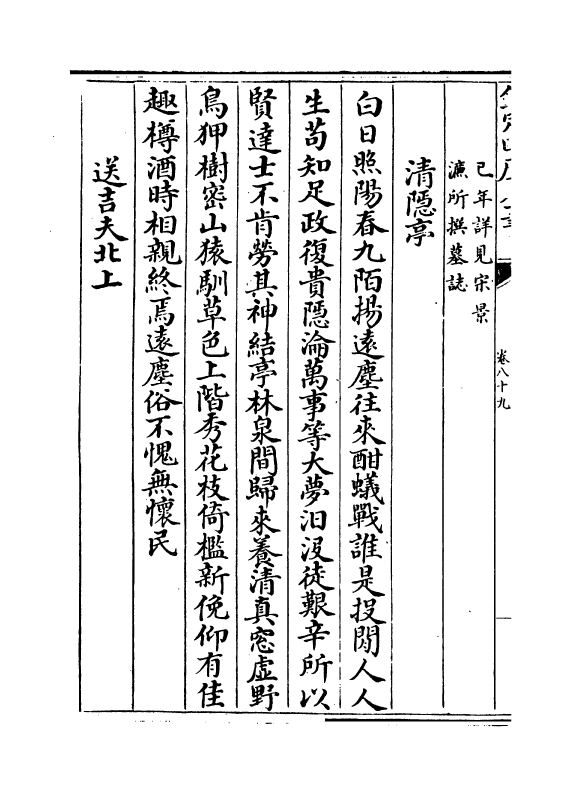 己年詳見宋景
濓所撰墓誌
清隠亭
白日照陽春九陌揚遠塵往來酣蟻戰誰是投閒人人
生苟知足政復貴隠淪萬事等大夢汨没徒艱辛所以
賢達士不肯勞其神結亭林泉間歸來養清真窓虚野
鳥狎樹密山猿馴草色上階秀花枝倚檻新俛仰有佳
趣樽酒時相親終焉遠塵俗不愧無懷民
送吉夫北上
卷八十九